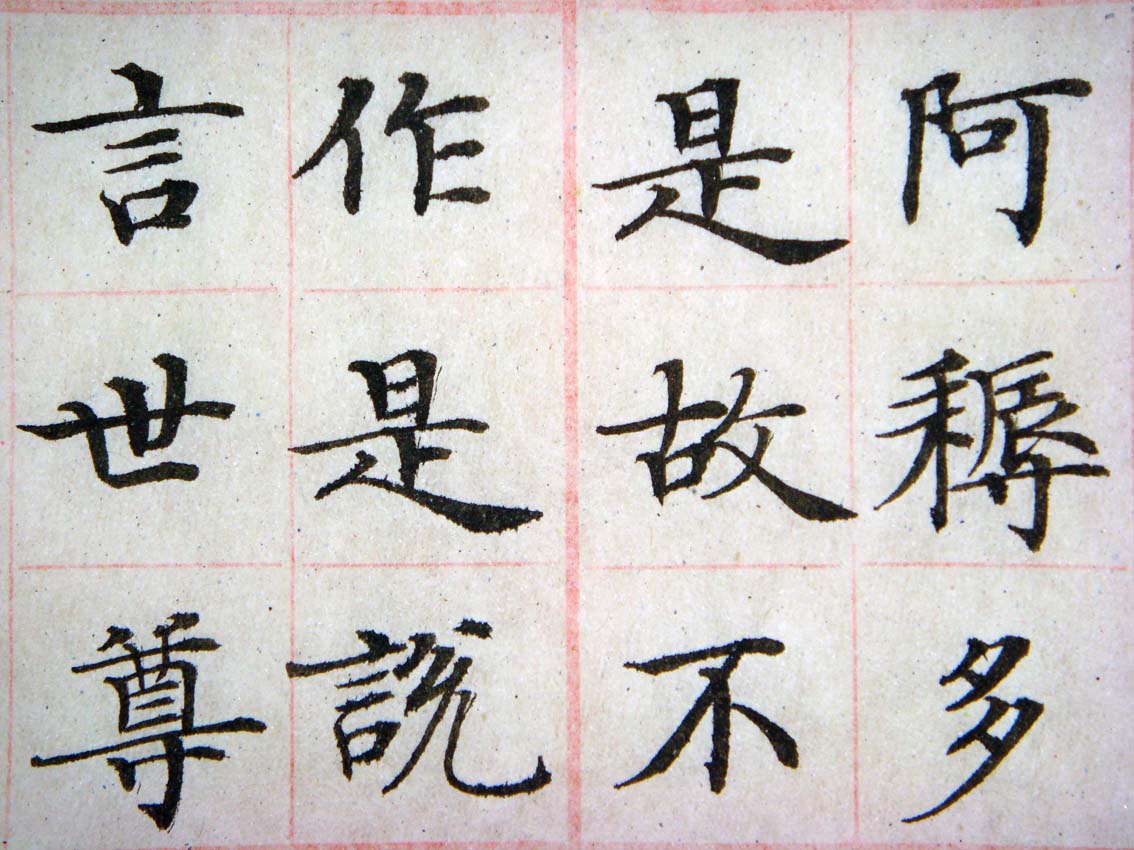 阿耨多
是故不
作是說
言世尊